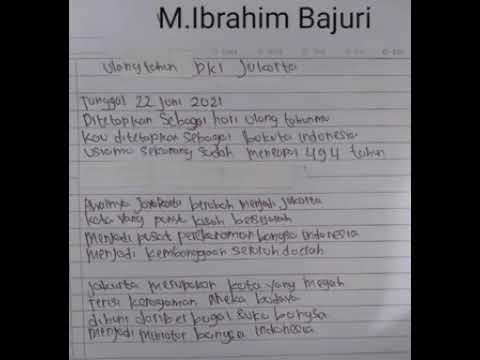 M.Ibrahim Bajuri
Ulang tahun DKI Jakarta
Tanggal 22 Juni 2021
Ditetapkan sebagai hari ulang tahunmu
Kau ditetapkan sebagai ibokuta indonesia
usiamu sekarang sudah mencapai 494 tahun
Awalnya Jayakarta berubah menjadi Jakarta
kota yang penuh kisah bersejarah
menjadi pusat bangsa indonesia
menjadi kembanggaan seluruh daerah
Jakarta merupakan kota yang megah
Terisi keragaman Aneka budaya
dihuni dari berbagai suku bangsa
menjadi miniatur bangsa Indonesia